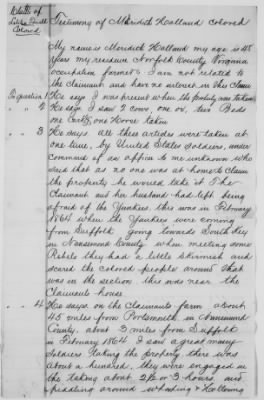 Claim of
Colored
Testimony of Mordick Holland Colored
My name is Mordick Holland my age is 48
Years my residence Norfolk County Virginia
occupation farmer I am not related to
the claimant and have no interest in the claim
To question 1 He says I was present when the property was taken
" " 2 He says I saw 2 cows, one ox, two Beds
one Cart, one Horse taken
" " 3 He says all these articles were taken at
one time, by United States soldiers, under
command of an officer to me unknown who
said that as no one was at home to claim
the property he would take it The
Claimant and her husband had left being
afraid of the Yankees this was in February
1864 when the Yankees were coming
from Suffolk going towards South Key
in Nansemond County when meeting some
Rebels they had a little skirmish and
scared the colored people around that
was in the section this was near the
Claimants house
" " 4 He says on the Claimants farm about
45 miles from Portsmouth in Nansemond
County, about 3 miles from Suffolk
in February 1864 I saw a great many
soldiers taking the property there was
about a hundred, they were engaged in
the taking about 2½ or 3 hours, and
around